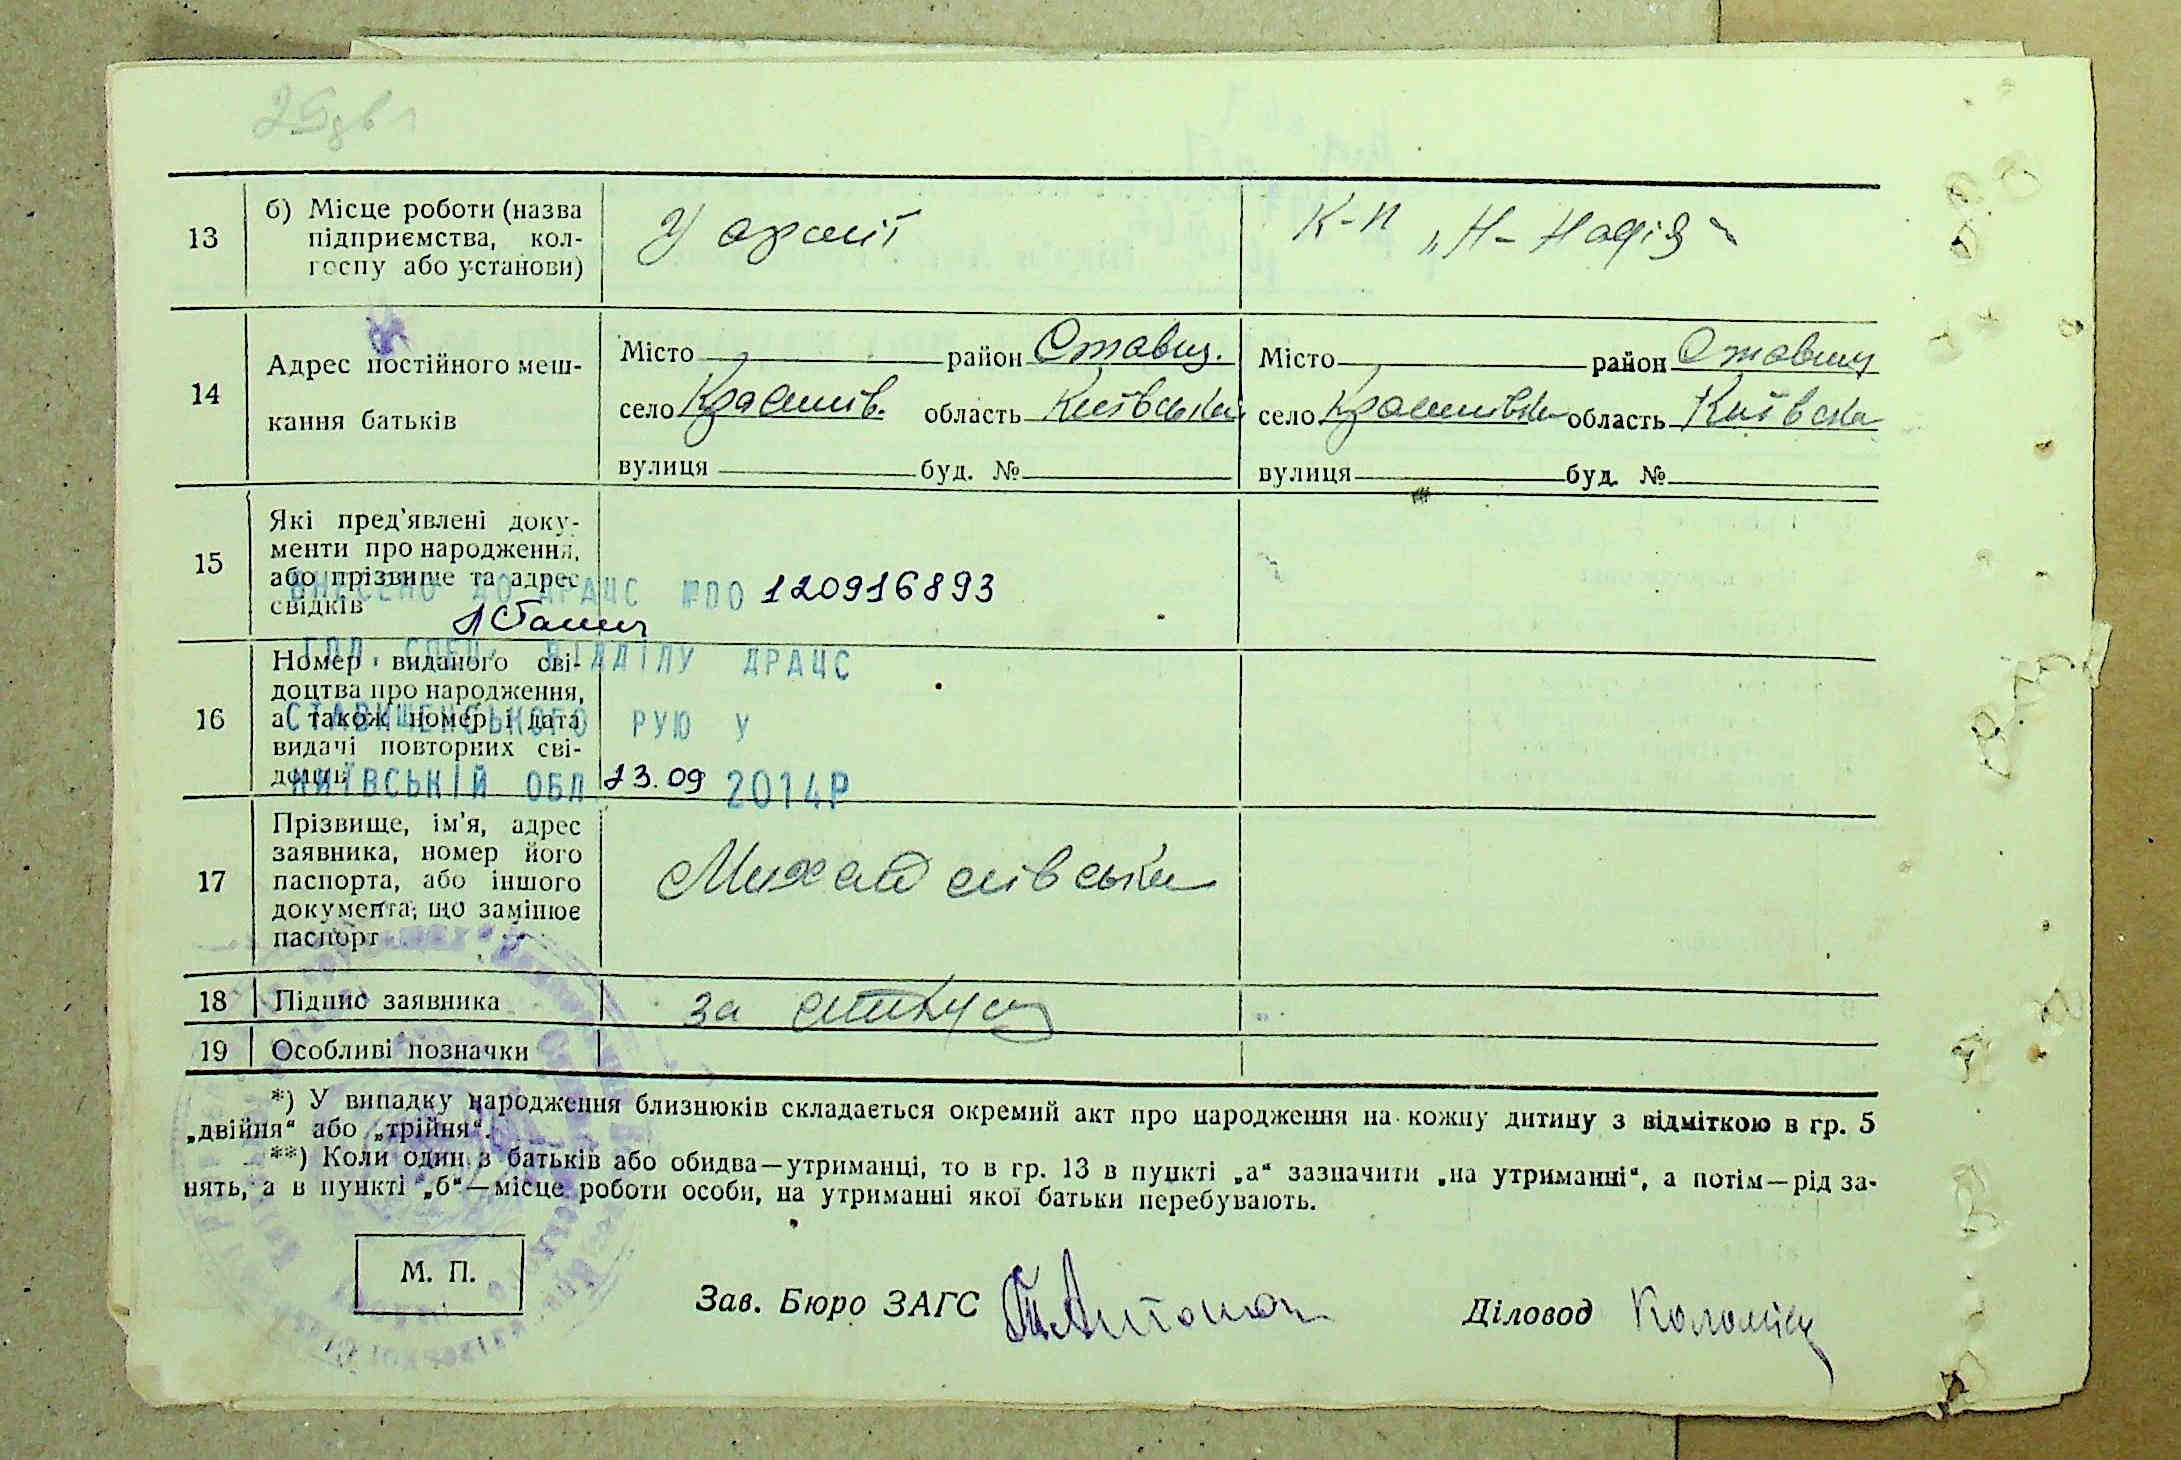 13
б) Місце роботи (назва
підприємства, кол-
госпу або установи)
У армії
К-п „Н-Надія"
14
Адрес постійного меш-
кання батьків
Місто район Ставищ.
село область Київська
вулиця буд. №
Місто район Ставищ
село область Київська
вулиця буд. №
15
Які пред'явлені доку-
менти про народження,
або прізвище та адрес
свідків
ВНЕСЕНО ДО ДРАЦС №00 120916893
16
Номер виданого сві-
доцтва про народження,
а також номер і дата
видачі повторних сві-
доцтв
ГОЛ. СПЕЦ. ВІДДІЛУ ДРАЦС
СТАВИЩЕНСЬКОГО РУЮ У
КИЇВСЬКІЙ ОБЛ 23.09 2014Р
17
Прізвище, ім'я, адрес
заявника, номер його
паспорта, або іншого
документа, що замінює
паспорт
18
Підпис заявника
за
19
Особливі позначки
*) У випадку народження близнюків складається окремий акт про народження на кожну дитину з відміткою в гр. 5
„двійня“ або „трійня“.
**) Коли один з батьків або обидва—утриманці, то в гр. 13 в пункті „а“ зазначити „на утриманні“, а потім—рід за-
нять, а в пункті „б“—місце роботи особи, на утриманні якої батьки перебувають.
М. П.
Зав. Бюро ЗАГС
Діловод Коломієц